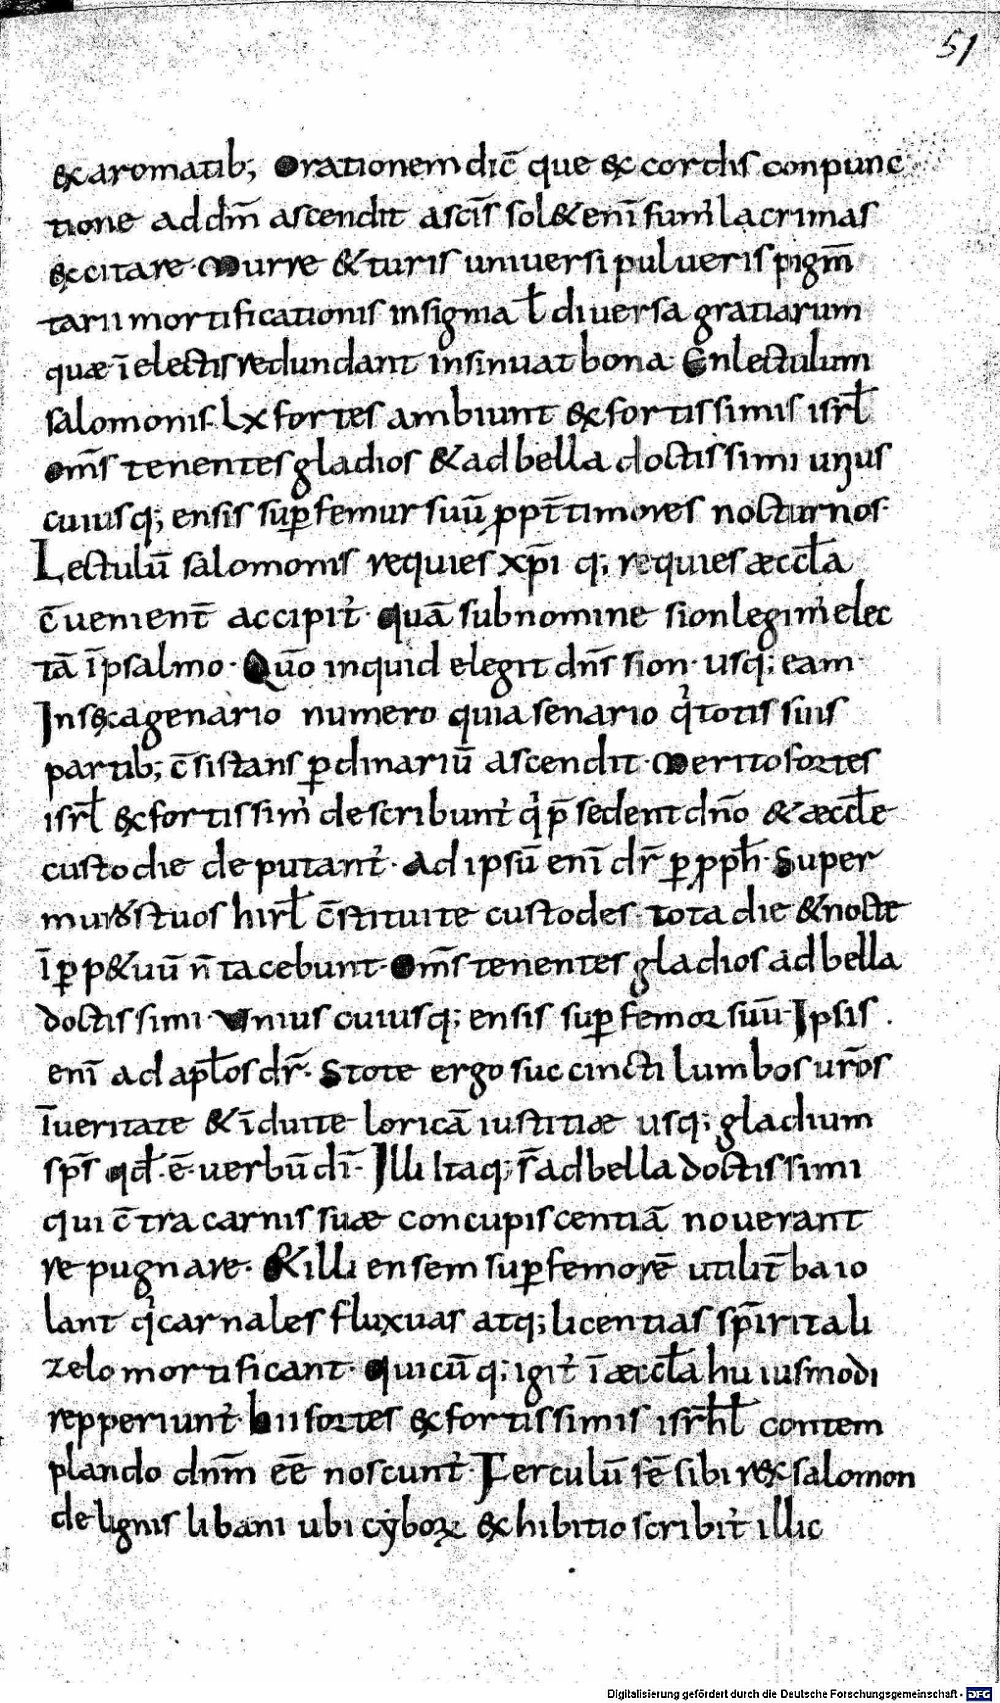 51
& aromatib; Orationem dic̄ que ex cordis conpunc
tione ad dm̄ ascendit ascīs sol& enī fumˀ lacrimas
excitare. Murre & turis universi pulueris pigm̄
tarii mortificationis insigma ł diuersa gratiarum
quæ ī electis redundant insinuat bona. En lectulum
salomonis. Lx fortes ambiunt ex fortissimis isrł
om̄s tenentes gladios & ad bella doctissimi unus
cuiusq; ensis sup̱ femur suū ꝓpt̄ timores nocturnos.
Lectulū salomonis requies xp̄i q; requies æccłą
c̄uenient̄ accipitˀ. quā sub nomine sion legimˀ elec
tā ī psalmo. Qūo inquid elegit dn̄s sion. usq; eam.
In sexagenario numero quia senario qˡ totis suis
partib; c̄sistans ꝑ dinariū ascendit. Merito fortes
isrł ex fortissimˡ describuntˀ qˡ p̄sedent dn̄o & æccłe
custodie deputantˀ. Ad ipsū enī dr̄ ꝑ ꝓph̄. Super
muros tuos hirł c̄stituite custodes. tota die & nocte
ī ꝑp&uū n̄ tacebunt. Om̄s tenentes gladios ad bella
doctissimi. Vnius cuiusq; ensis sup̱ femoꝛ suū. Ipsis.
enī ad apłos dr̄. State ergo succincti lumbos ur̄os
ī ueritate & īduite loricā iustitiæ usq; gladium
sp̄s qđ. ē. uerbū dī. Illi itaq; s̄ ad bella doctissimi
qui c̄tra carnis suæ concupiscentiā nouerant
repugnare. & illi ensem sup̱ femorē utilit̄ baio
lant qˡ carnales fluxuas atq; licentias sp̄iritali
zelo mortificant. Quicūq; igitˀ ī æccła huiusmodi
repperiuntˀ. hii fortes ex fortissimis isrh̄ł contem
plando dn̄m eē noscuntˀ. Ferculū fē sibi rex salomon
de lignis libani ubi cẏboꝝ exhibitio scribitˀ illic
Digitalisierung gefördert durch die Deutsche Forschungsgemeinschaft - DFG